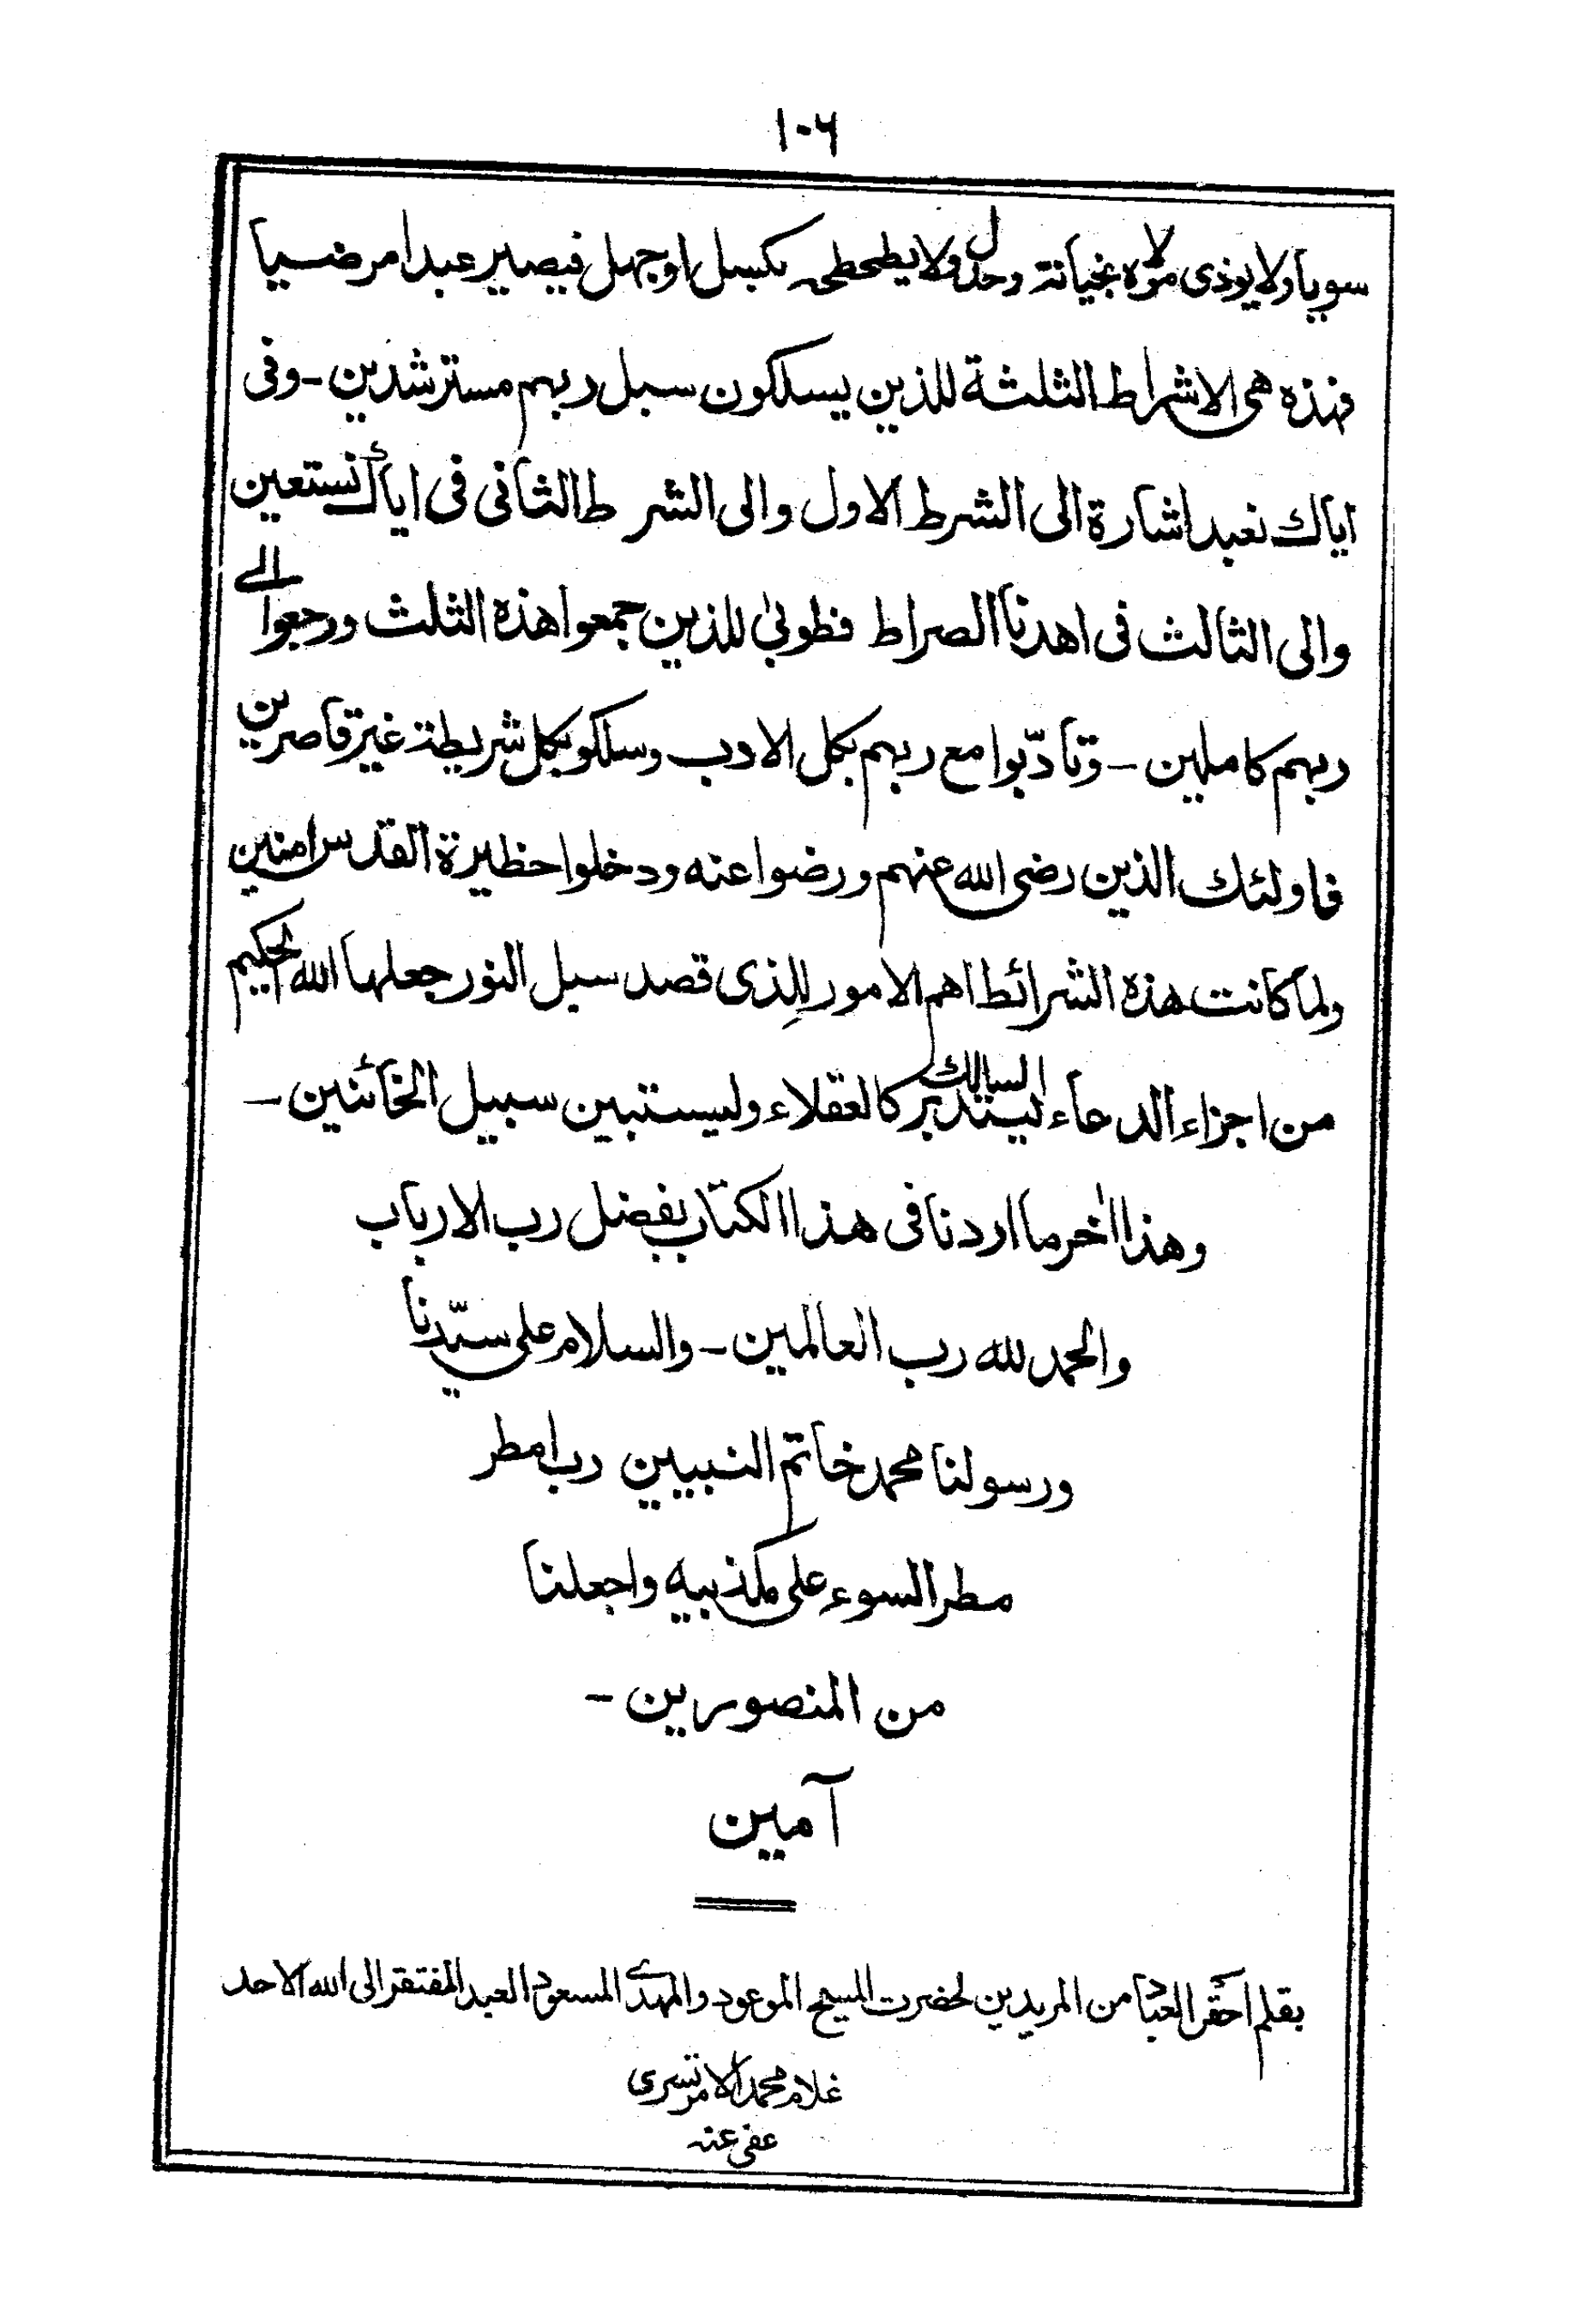 ١٠٦
سويا ولا يوذى مولاه بخيانة وحدل ولا يطحطحه بكسل او جهل فيصير عبدا مرضيا
فهذه هى الاشراط الثلثة للذين يسلكون سبل ربهم مسترشدين - وفى
اياك نعبد اشارة الى الشرط الاول والى الشرط الثانى فى اياك نستعين
والى الثالث فى اهدنا الصراط فطوبىٰ للذين جمعوا هذه الثلث ورجعوا الى
ربهم كاملين - وتادّبوا مع ربهم بكل الادب وسلكو بكل شريطة غير قاصرين
فاولئك الذين رضى الله عنهم ورضوا عنه ودخلوا حظيرة القدس امنين
ولما كانت هذه الشرائط اهم الامور للِذى قصد سبل النور جعلها الله الحكيم
من اجزاء الدعاء ليتدبر السالك كالعقلاء وليستبين سبيل الخائنين -
وهذا اٰخر ما اردنا فى هذا الكتاب بفضل رب الارباب
والحمد لله رب العالمين - والسلام على سيّدنا
ورسولنا محمد خاتم النبيين رب امطر
مطر السوء على مكذبيه واجعلنا
من المنصورين -
آمين
بقلم احقر العباد من المريدين لحضرت المسيح الموعود والمهدى المسعود العبد المفتقر الى الله الاحد
غلام محمد الامرتسرى
عفى عنه